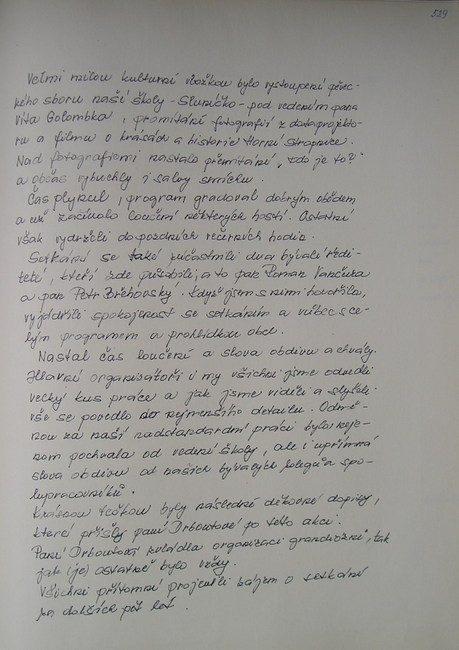 529
Velmi milou kulturní vložkou bylo vystoupení pěvec-
kého sboru naší školy - Sluníčko - pod vedením pana
Víta Golombka, promítání fotografií z dataprojekto-
ru a filmu o krásách a historii Horní Stropnice.
Nad fotografiemi nastalo přemítání, "kdo je to?"
a občas vybuchly i salvy smíchu.
Čas plynul, program gradoval dobrým obědem
a už začínalo loučení některých hostí. Ostatní
však vydrželi do pozdních večerních hodin.
Setkání se také zúčastnili dva bývalí ředi-
telé, kteří zde působili, a to pan Roman Vančura
a pan Petr Břehovský. Když jsem s nimi hovořila,
vyjádřili spokojenost se setkáním a vůbec s ce-
lým programem a prohlídkou obcí.
Nastal čas loučení a slova obdivu a chvály.
Hlavní organizátoři i my všichni jsme odvedli
velký kus práce a jak jsme viděli a slyšeli
vše se povedlo do nejmenšího detailu. Odmě-
nou za naši nadstandardní práci byla neje-
nom pochvala od vedení školy, ale i upřímná
slova obdivu od našich bývalých kolegů a spo-
lupracovníků.
Krásnou tečkou byly následně děkovné dopisy,
které přišly paní Drboutové po této akci.
Paní Drboutová zvládla organizaci grandiózně, tak
jak (je) ostatně bylo vždy.
Všichni přítomní projevili zájem o setkání
po dalších pět let.